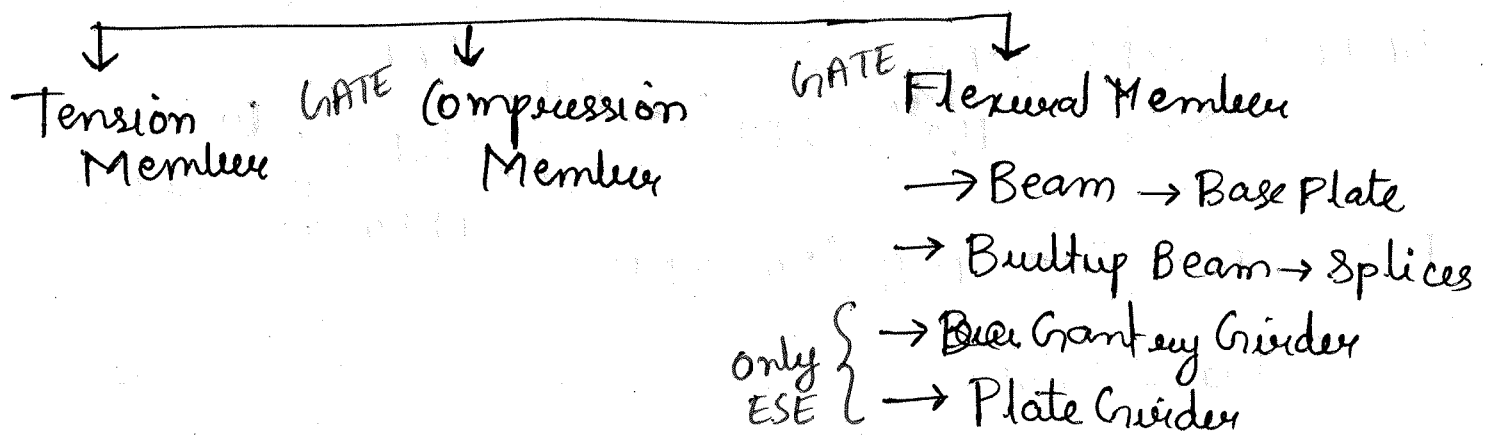 Tension
Member
GATE
Compression
Member
GATE
Flexural Member
→ Beam → Base Plate
→ Builtup Beam → Splices
only
ESE
→ Gantry Girder
→ Plate Girder